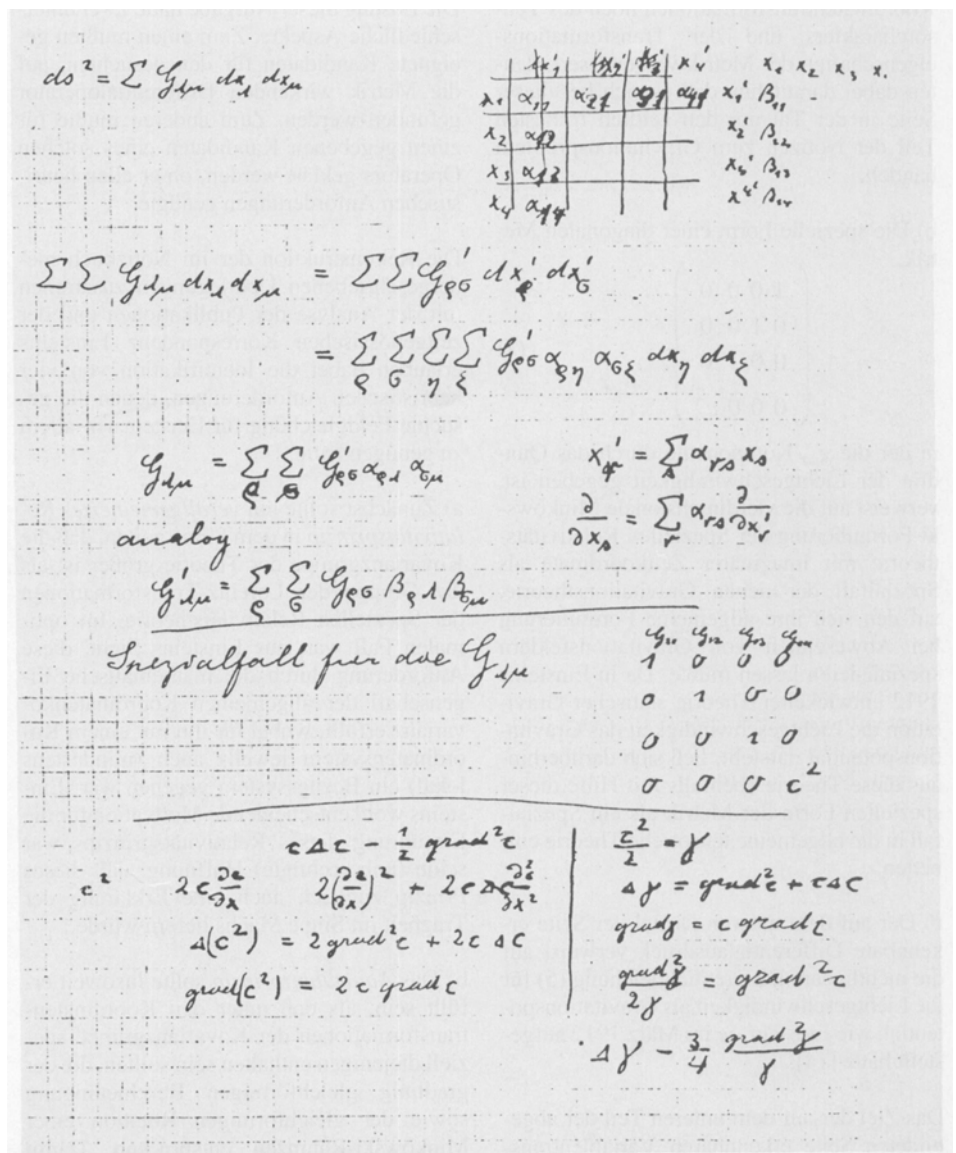 ds² = Σ G_λμ dx_λ dx_μ
x'₁ x'₂ x'₃ x'₄
x₁ α₁₁ α₂₁ α₃₁ α₄₁
x₂ α₁₂
x₃ α₁₃
x₄ α₁₄
x₁ x₂ x₃ x.
x₁' β₁₁
x₂' β₁
x₃' β₁₃
x₄' β₁₄
Σ Σ G_λμ dx_λ dx_μ = Σ Σ G'_ρσ dx'_ρ dx'_σ
= Σ_ρ Σ_σ Σ_η Σ_ξ G'_ρσ α_ρη α_σξ dx_η dx_ξ
G_λμ = Σ_ρ Σ_σ G'_ρσ α_ρλ α_σμ
x'_r = Σ_s α_rs x_s
analog
∂/∂x_s = Σ_r α_rs ∂/∂x'_r
G'_λμ = Σ_ρ Σ_σ G_ρσ β_ρλ β_σμ
Spezialfall für die G_λμ
G₁₁ G₁₂ G₁₃ G₁₄
1 0 0 0
0 1 0 0
0 0 1 0
0 0 0 c²
c Δc − 1/2 grad²c
c² 2c ∂c/∂x 2(∂c/∂x)² + 2c ∂²c/∂x²
Δ(c²) = 2 grad²c + 2c Δc
grad(c²) = 2 c grad c
c²/2 = γ
Δγ = grad²c + cΔc
gradγ = c grad c
grad²γ/2γ = grad²c
Δγ − 3/4 grad γ²/γ